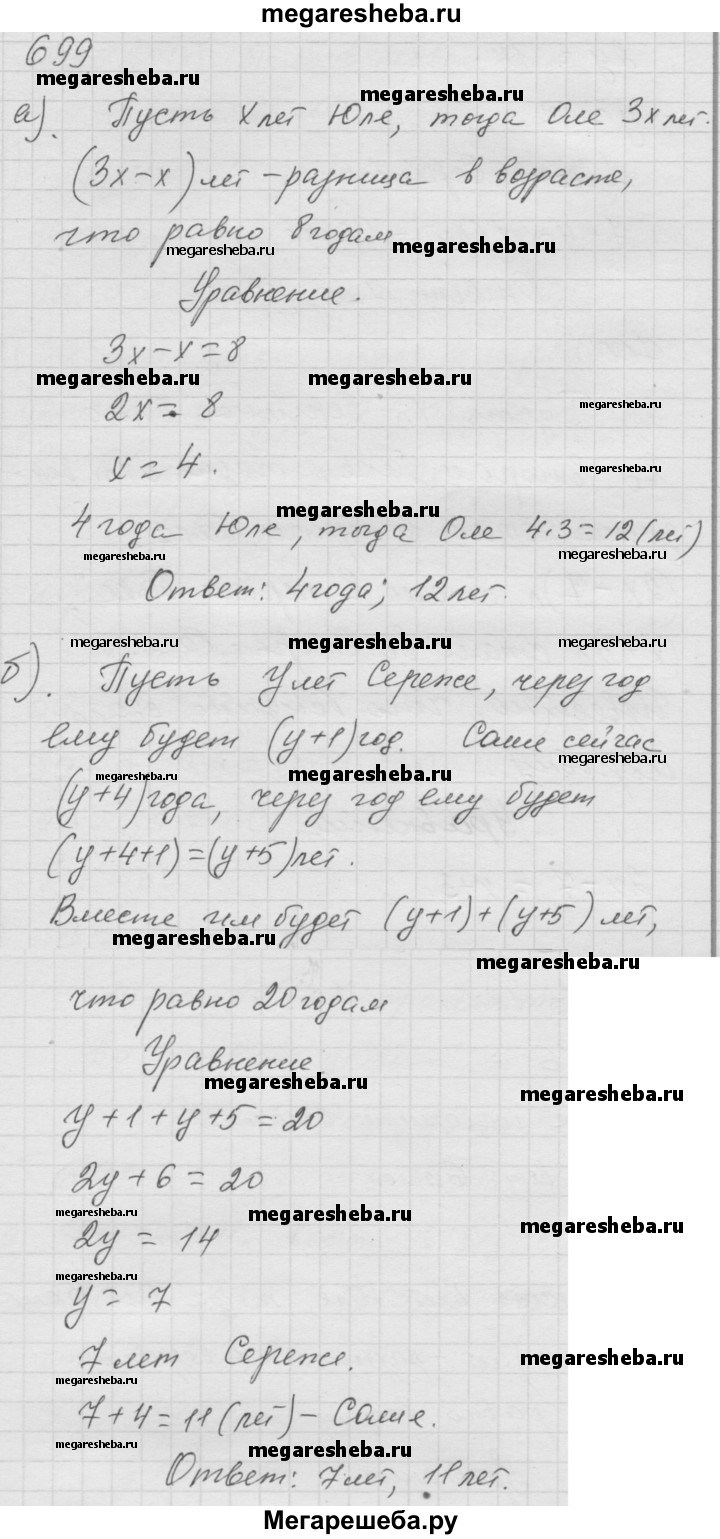 megaresheba.ru
699
megaresheba.ru
megaresheba.ru
а). Пусть x лет Юле, тогда Оле 3x лет.
(3x-x) лет - разница в возрасте,
что равно 8 годам
megaresheba.ru
megaresheba.ru
Уравнение.
3x-x=8
megaresheba.ru
megaresheba.ru
megaresheba.ru
2x = 8
megaresheba.ru
x = 4.
megaresheba.ru
4 года Юле, тогда Оле 4·3=12(лет)
megaresheba.ru
megaresheba.ru
Ответ: 4 года; 12 лет.
megaresheba.ru
megaresheba.ru
megaresheba.ru
б). Пусть У лет Сереже, через год
ему будет (y+1) год. Саше сейчас
megaresheba.ru
megaresheba.ru
megaresheba.ru
(y+4) года, через год ему будет
(y+4+1)=(y+5) лет.
Вместе им будет (y+1)+(y+5) лет,
megaresheba.ru
megaresheba.ru
что равно 20 годам
Уравнение
megaresheba.ru
megaresheba.ru
y+1+y+5=20
2y+6=20
megaresheba.ru
megaresheba.ru
megaresheba.ru
2y = 14
megaresheba.ru
y = 7
7 лет Сереже.
megaresheba.ru
megaresheba.ru
7+4=11(лет) - Саше.
megaresheba.ru
megaresheba.ru
Ответ: 7 лет, 11 лет.
Мегарешеба.ру